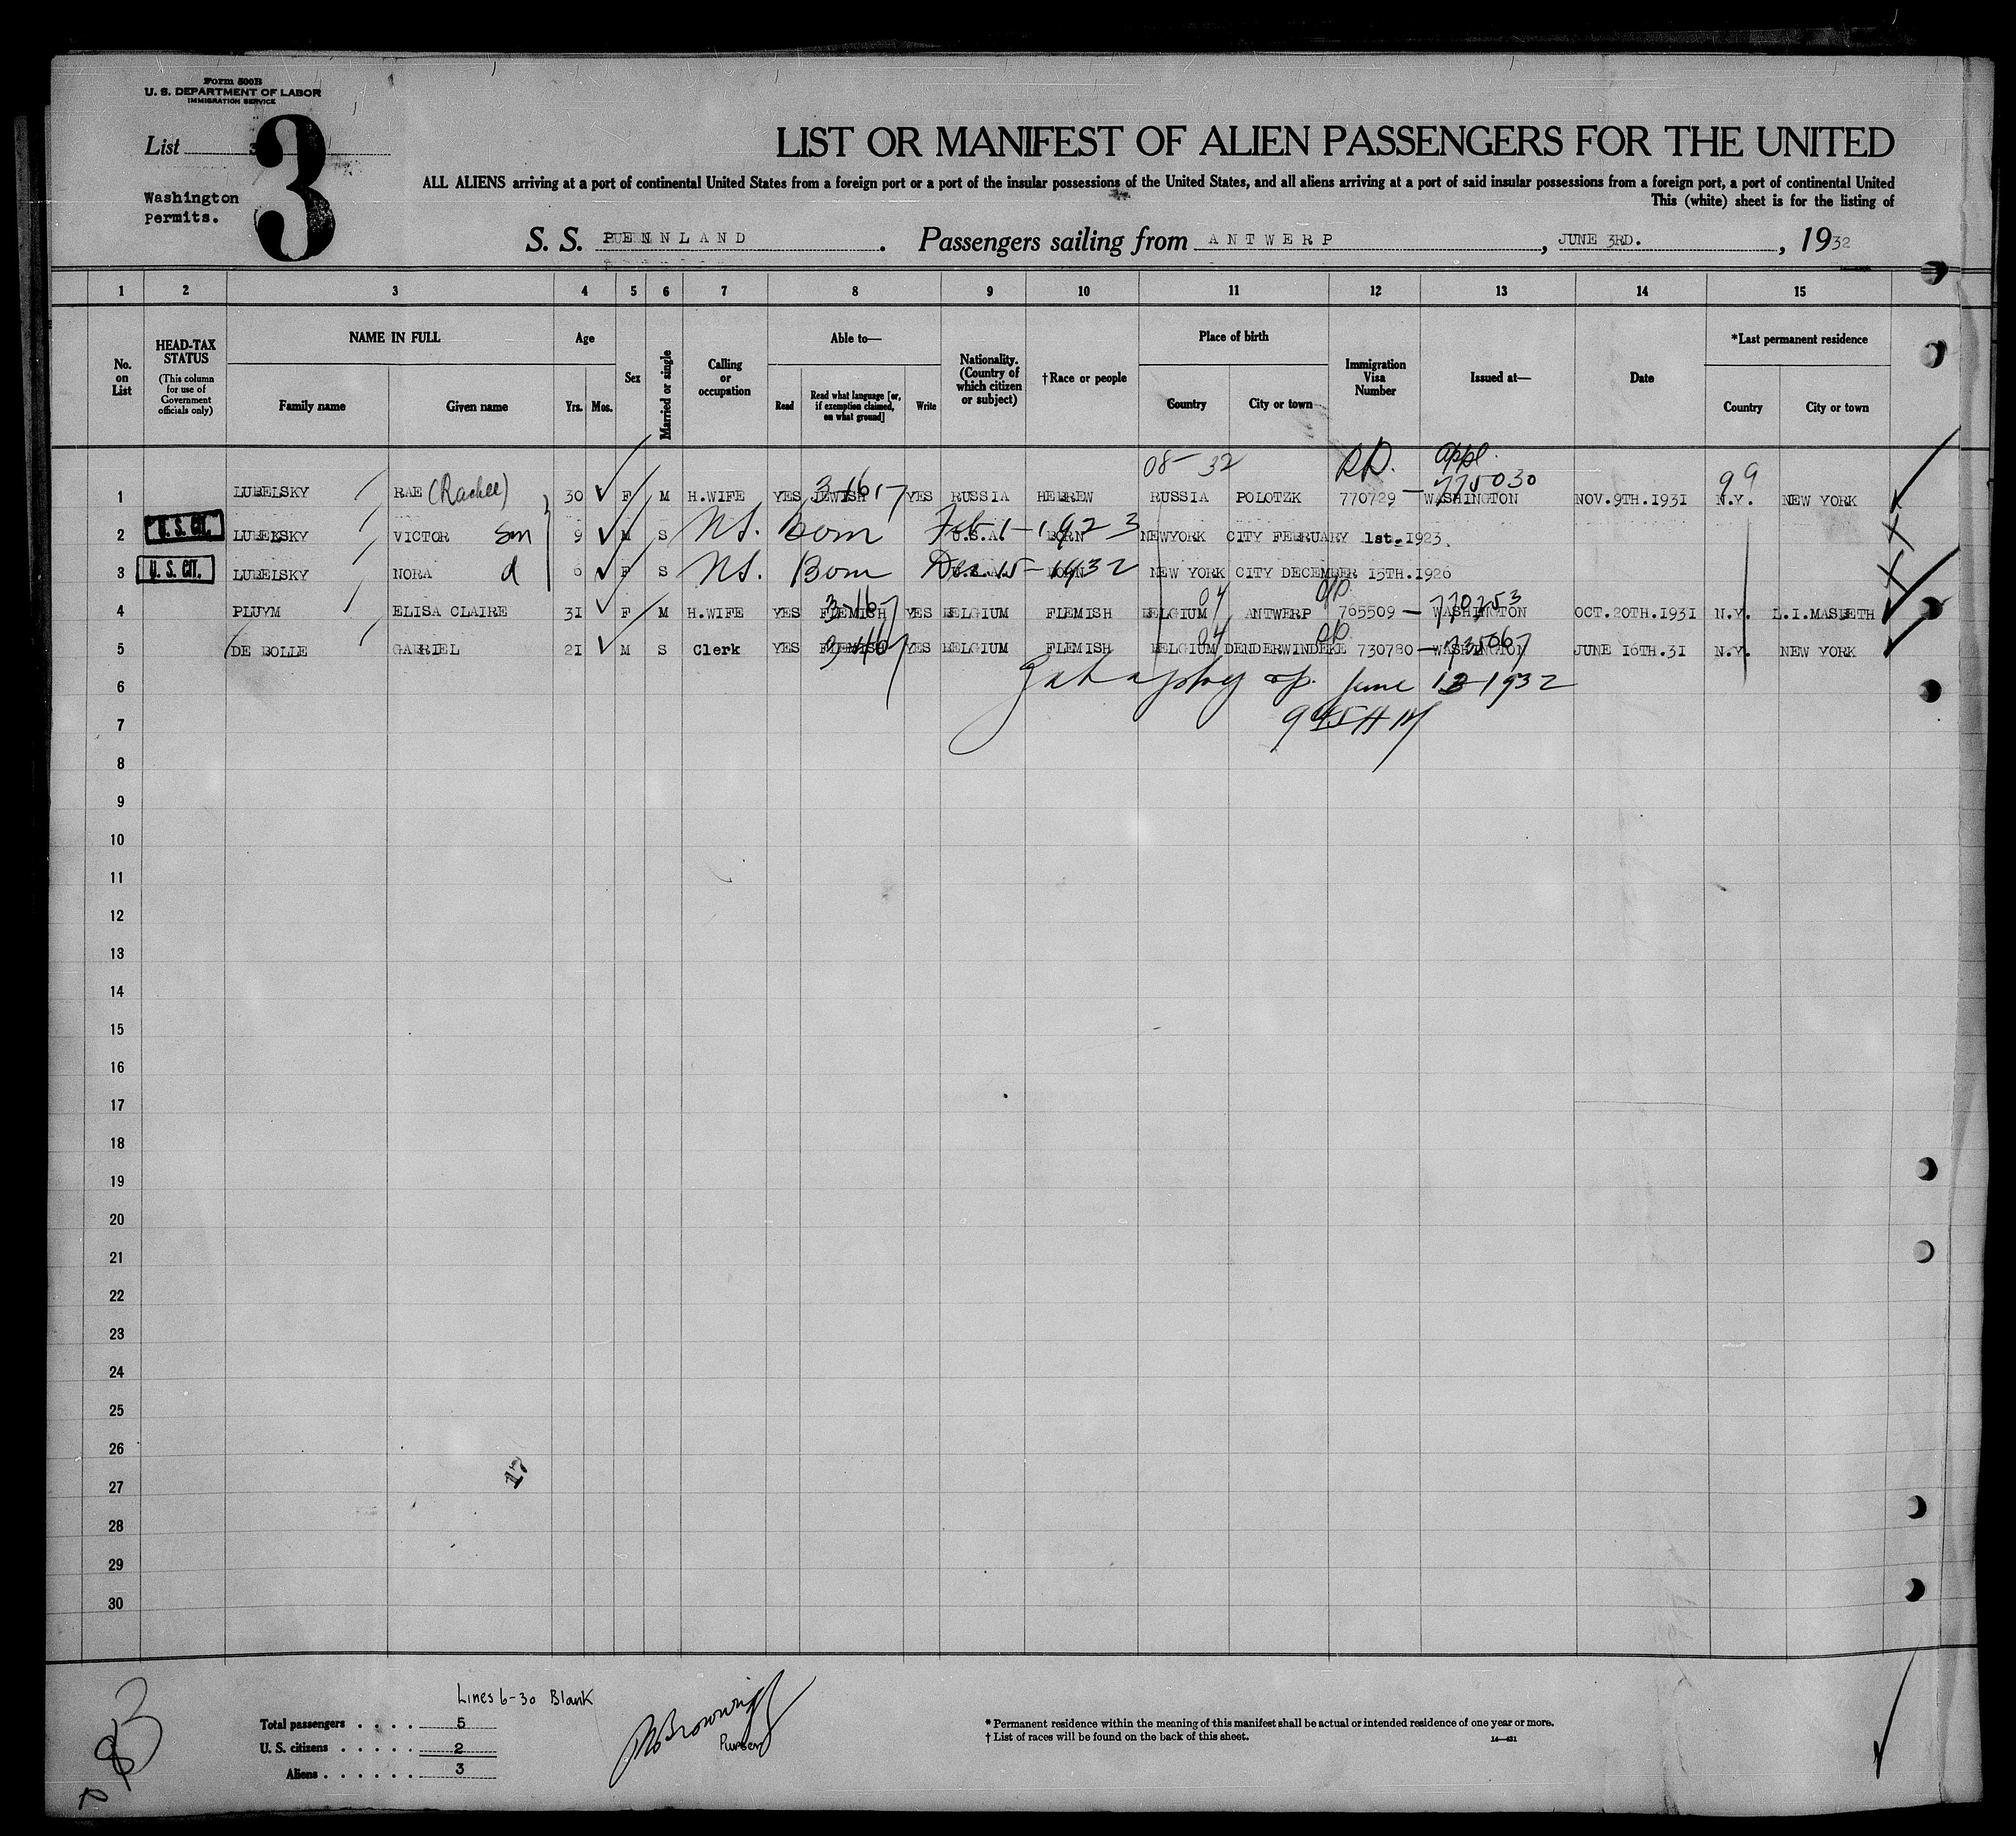 Form 500B
U. S. DEPARTMENT OF LABOR
IMMIGRATION SERVICE
List 3
3
Washington
Permits.
LIST OR MANIFEST OF ALIEN PASSENGERS FOR THE UNITED
ALL ALIENS arriving at a port of continental United States from a foreign port or a port of the insular possessions of the United States, and all aliens arriving at a port of said insular possessions from a foreign port, a port of continental United
This (white) sheet is for the listing of
S. S. PENNLAND. Passengers sailing from ANTWERP, JUNE 3RD., 1932
1 2 3 4 5 6 7 8 9 10 11 12 13 14 15
No. on List
HEAD-TAX STATUS
(This column for use of Government officials only)
NAME IN FULL
Family name Given name
Age
Yrs. Mos.
Sex
Married or single
Calling or occupation
Able to—
Read
Read what language [or, if exemption claimed, on what ground]
Write
Nationality. (Country of which citizen or subject)
†Race or people
Place of birth
Country City or town
Immigration Visa Number
Issued at—
Date
*Last permanent residence
Country City or town
08- 32 RP. appl. 99
775030
1 LUBELSKY RAE (Rachel) 30 F M H.WIFE YES JEWISH YES RUSSIA HEBREW RUSSIA POLOTZK 770729 — WASHINGTON NOV.9TH.1931 N.Y. NEW YORK
2 U. S. CIT. LUBELSKY VICTOR Son 9 M S U.S.A. BORN NEWYORK CITY FEBRUARY 1st.1923.
Born Feb 1-1923
3 U. S. CIT. LUBELSKY NORA d 6 F S BORN NEW YORK CITY DECEMBER 15TH.1926
Born Dec 15-1932
04 RP 770253
4 PLUYM ELISA CLAIRE 31 F M H.WIFE YES FLEMISH YES BELGIUM FLEMISH BELGIUM ANTWERP 765509 — WASHINGTON OCT.20TH.1931 N.Y. L.I.MASPETH
04 RP 735067
5 DE BOLLE GABRIEL 21 M S Clerk YES FLEMISH YES BELGIUM FLEMISH BELGIUM DENDERWINDEKE 730780 — WASHINGTON JUNE 16TH.31 N.Y. NEW YORK
6 June 13-1932
7 945 AM
8
9
10
11
12
13
14
15
16
17
18
19
20
21
22
23
24
25
26
27
17
28
29
30
Lines 6-30 Blank
Total passengers . . . . 5
U. S. citizens . . . . . 2
Aliens . . . . . . 3
Browning
Purser
* Permanent residence within the meaning of this manifest shall be actual or intended residence of one year or more.
† List of races will be found on the back of this sheet.
14—431